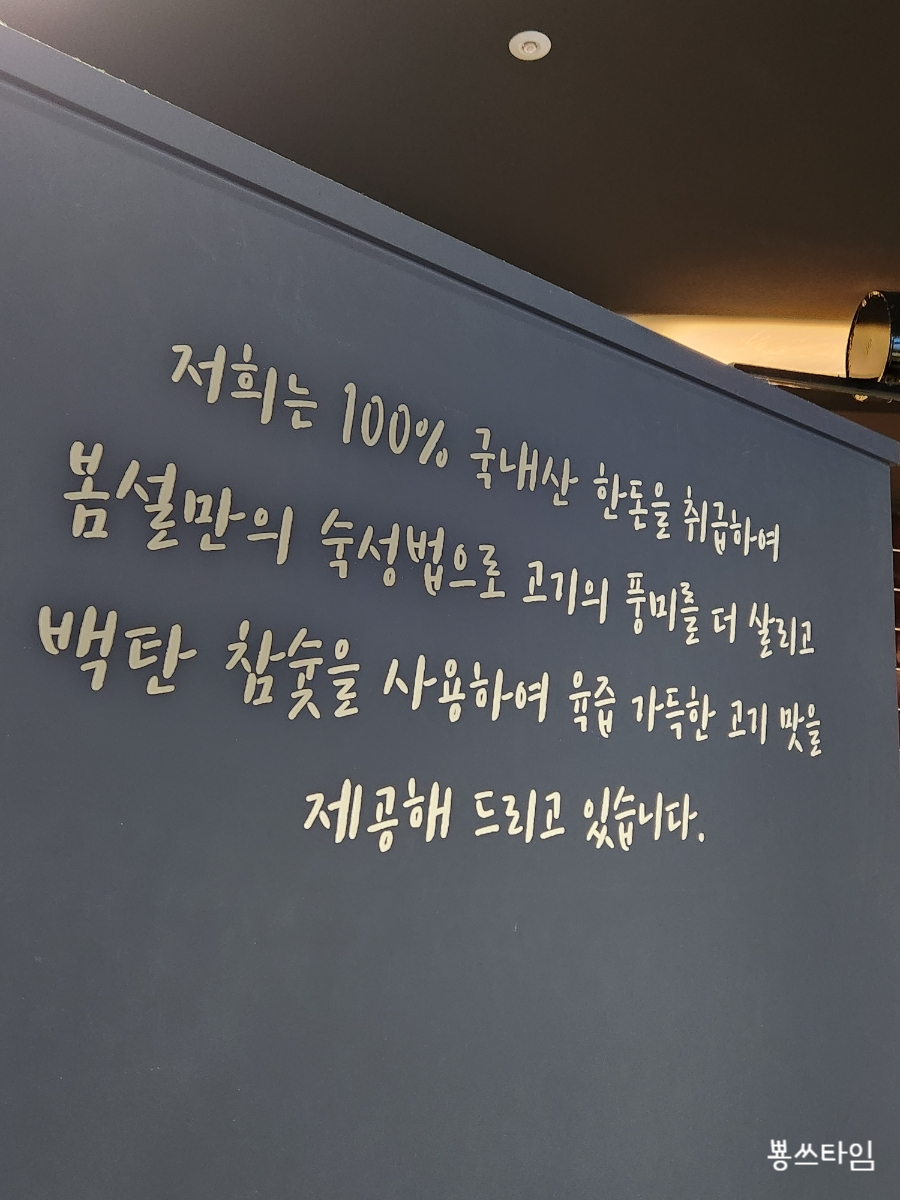 저희는 100% 국내산 한돈을 취급하여
봄설만의 숙성법으로 고기의 풍미를 더 살리고
백탄 참숯을 사용하여 육즙 가득한 고기 맛을
제공해 드리고 있습니다.
뿅쓰타임